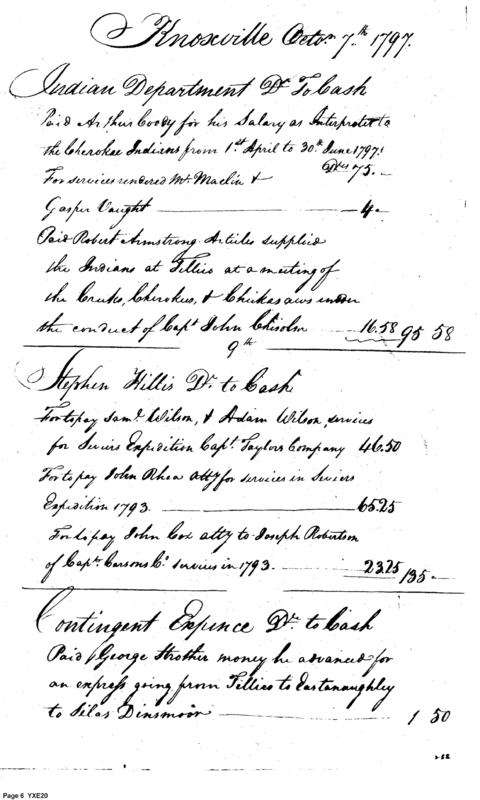 Knoxville Octor. 7.th 1797.
Indian Department Dr. To Cash
Paid Arthur Coody for his Salary as Interpreter to
the Cherokee Indians from 1.st April to 30.th June 1797.
75. —
For services rendered Mr. Maclin &
Gasper Vaught — 4 —
Paid Robert Armstrong Articles supplied
the Indians at Tellico at a meeting of
the Creeks, Cherokees, & Chickasaws under
the conduct of Capt. John Chisolm — 16.58 95 58
9th
Stephen Hillis Dr. to Cash
For to pay Saml. Wilson, & Adam Wilson services
for Seviers Expedition Capt. Taylors Company 46.50
For to pay John Rhea atty for services in Seviers
Expedition 1793. — 65.25
For to pay John Cox atty to Joseph Robertson
of Capt. Carsons Co. services in 1793. — 23.25 135 —
Contingent Expence Dr. to Cash
Paid George Strother money he advanced for
an express going from Tellico to Eastanaughley
to Silas Dinsmoor — 1 50
Page 6 YXE20